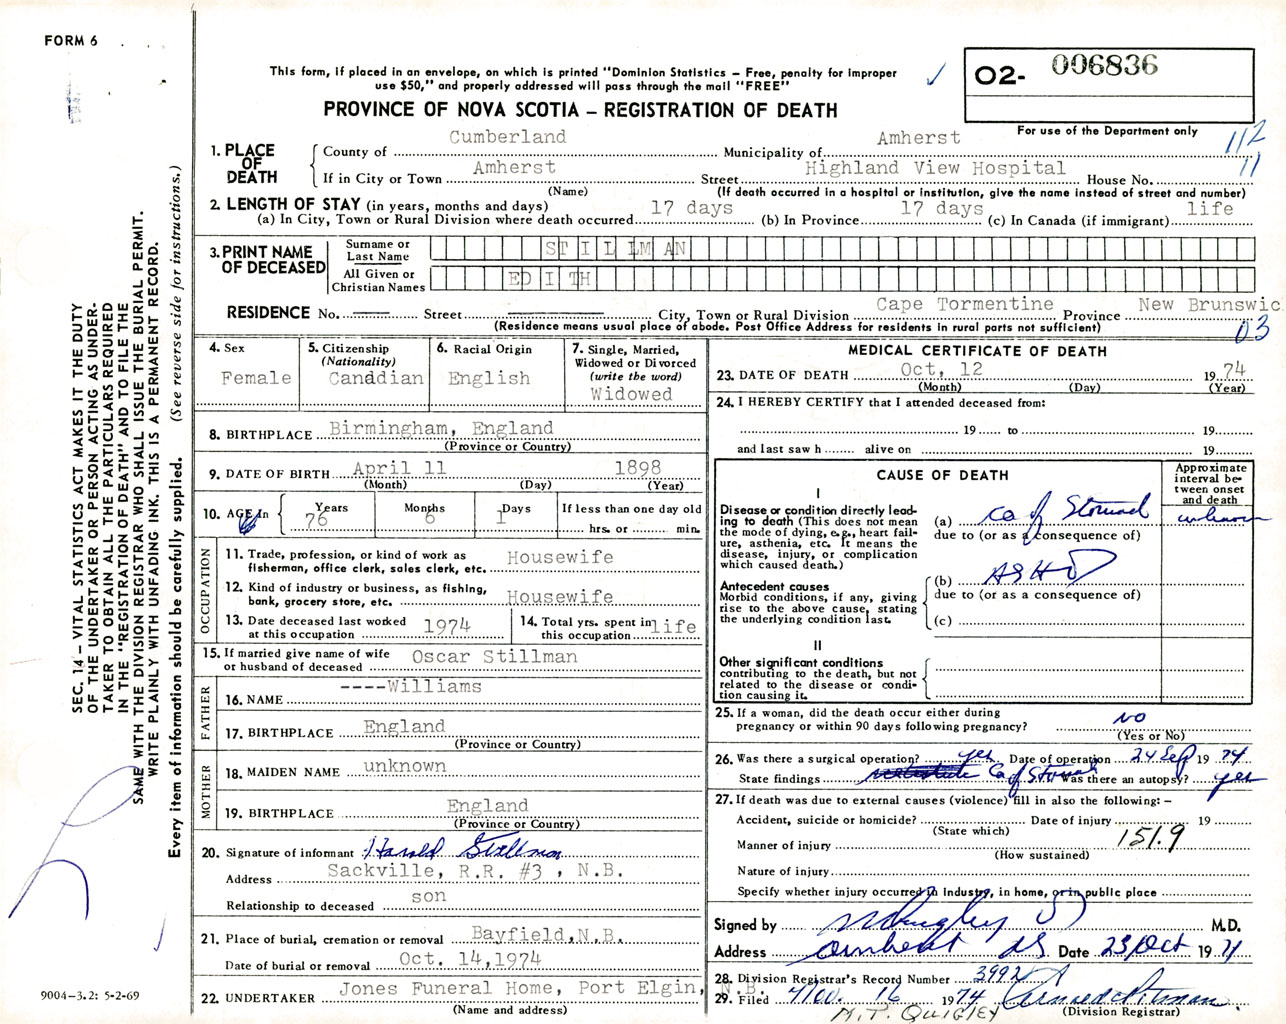 FORM 6
This form, if placed in an envelope, on which is printed "Dominion Statistics – Free, penalty for improper
use $50," and properly addressed will pass through the mail "FREE"
02- 006836
PROVINCE OF NOVA SCOTIA – REGISTRATION OF DEATH
For use of the Department only
112
11
1. PLACE OF DEATH
County of Cumberland Municipality of Amherst
If in City or Town Amherst Street Highland View Hospital House No.
(Name) (If death occurred in a hospital or institution, give the name instead of street and number)
2. LENGTH OF STAY (in years, months and days)
(a) In City, Town or Rural Division where death occurred 17 days (b) In Province 17 days (c) In Canada (if immigrant) life
3. PRINT NAME OF DECEASED
Surname or Last Name STILLMAN
All Given or Christian Names EDITH
RESIDENCE No. Street City, Town or Rural Division Cape Tormentine Province New Brunswic
(Residence means usual place of abode. Post Office Address for residents in rural parts not sufficient)
03
4. Sex Female
5. Citizenship (Nationality) Canadian
6. Racial Origin English
7. Single, Married, Widowed or Divorced (write the word) Widowed
8. BIRTHPLACE Birmingham, England
(Province or Country)
9. DATE OF BIRTH April 11 1898
(Month) (Day) (Year)
10. AGE In Years 76 Months 6 Days 1 If less than one day old
hrs. or min.
OCCUPATION
11. Trade, profession, or kind of work as
fisherman, office clerk, sales clerk, etc. Housewife
12. Kind of industry or business, as fishing,
bank, grocery store, etc. Housewife
13. Date deceased last worked
at this occupation 1974
14. Total yrs. spent in
this occupation life
15. If married give name of wife
or husband of deceased Oscar Stillman
FATHER
16. NAME ----Williams
17. BIRTHPLACE England
(Province or Country)
MOTHER
18. MAIDEN NAME unknown
19. BIRTHPLACE England
(Province or Country)
20. Signature of informant Harold Stillman
Address Sackville, R.R. #3 , N.B.
Relationship to deceased son
21. Place of burial, cremation or removal Bayfield, N.B.
Date of burial or removal Oct. 14, 1974
22. UNDERTAKER Jones Funeral Home, Port Elgin, N.B.
(Name and address)
MEDICAL CERTIFICATE OF DEATH
23. DATE OF DEATH Oct, 12 1974
(Month) (Day) (Year)
24. I HEREBY CERTIFY that I attended deceased from:
19 to 19
and last saw h alive on 19
CAUSE OF DEATH
Approximate interval between onset and death
I
Disease or condition directly leading to death (This does not mean the mode of dying, e.g., heart failure, asthenia, etc. It means the disease, injury, or complication which caused death.)
(a) Ca of Stomach unknown
due to (or as a consequence of)
Antecedent causes
Morbid conditions, if any, giving rise to the above cause, stating the underlying condition last.
(b) ASHD
due to (or as a consequence of)
(c)
II
Other significant conditions
contributing to the death, but not related to the disease or condition causing it.
25. If a woman, did the death occur either during
pregnancy or within 90 days following pregnancy? no
(Yes or No)
26. Was there a surgical operation? yes Date of operation 24 Sep 1974
State findings Ca of Stomach Was there an autopsy? yes
27. If death was due to external causes (violence) fill in also the following: –
Accident, suicide or homicide? Date of injury 19
(State which)
Manner of injury 151.9
(How sustained)
Nature of injury
Specify whether injury occurred in Industry, in home, or in public place
Signed by M.D.
Address Amherst NS Date 23 Oct 1974
28. Division Registrar's Record Number 3992
29. Filed Nov. 16 1974
(Division Registrar)
M.T. QUIGLEY
SEC. 14 – VITAL STATISTICS ACT MAKES IT THE DUTY
OF THE UNDERTAKER OR PERSON ACTING AS UNDER-
TAKER TO OBTAIN ALL THE PARTICULARS REQUIRED
IN THE "REGISTRATION OF DEATH" AND TO FILE THE
SAME WITH THE DIVISION REGISTRAR WHO SHALL ISSUE THE BURIAL PERMIT.
WRITE PLAINLY WITH UNFADING INK. THIS IS A PERMANENT RECORD.
Every item of information should be carefully supplied. (See reverse side for instructions.)
9004–3.2: 5-2-69